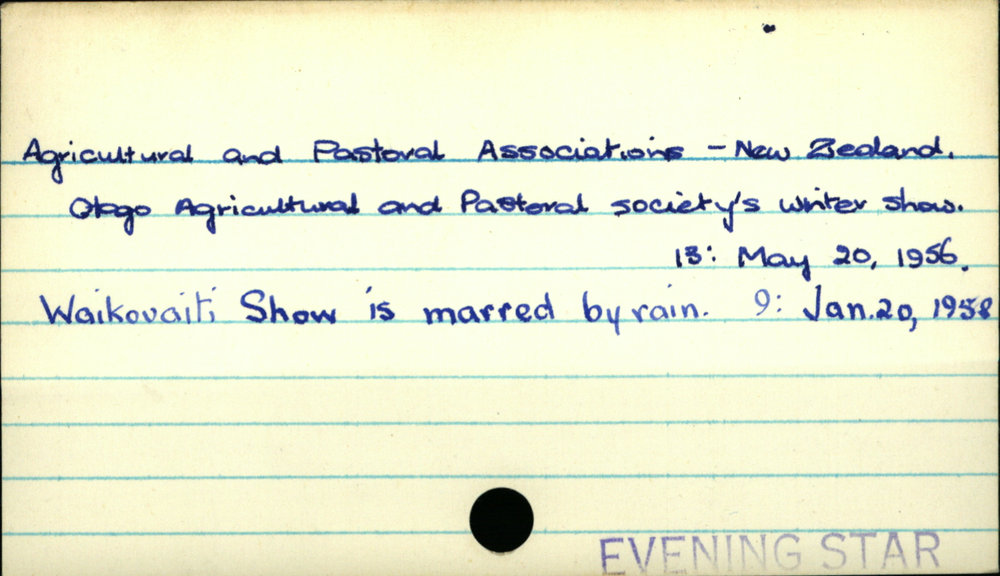 Agricultural and Pastoral Associations - New Zealand.
Otago Agricultural and Pastoral society's winter show.
13: May 20, 1956.
Waikouaiti Show is marred by rain. 9: Jan.20, 1958
EVENING STAR